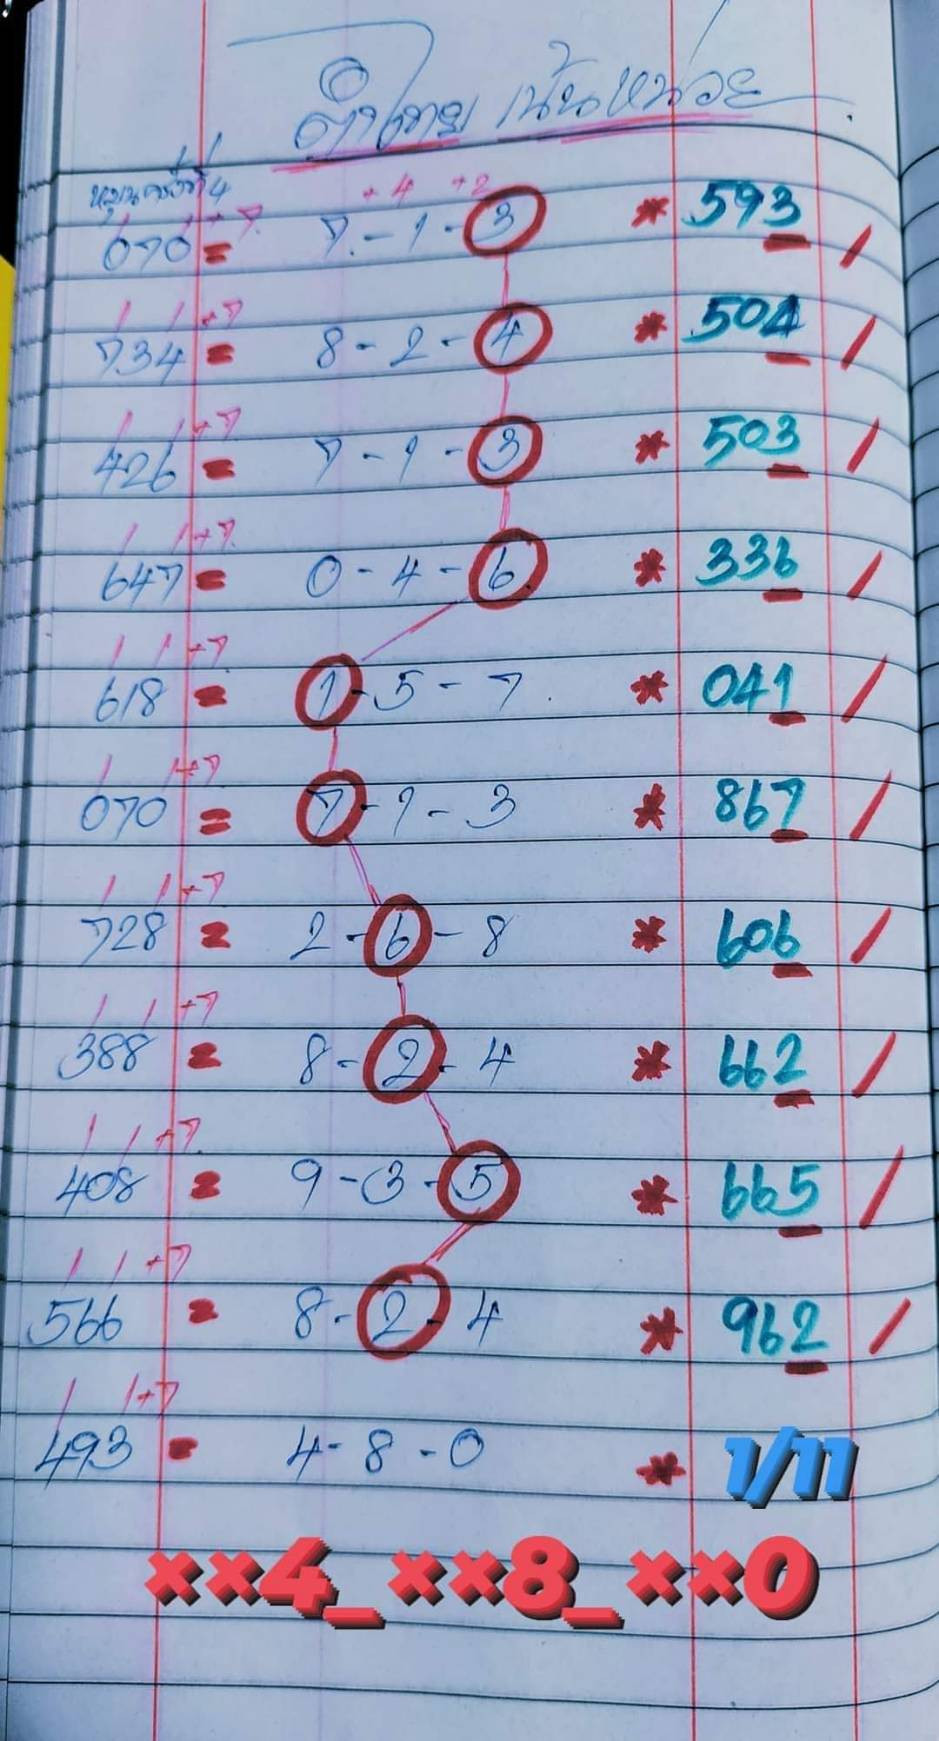 เน้นหน่วย
หมุนครั้งที่ 4
+7 +4 +2
070 = 7-1-3 * 593 /
+7
734 = 8-2-4 * 504 /
+7
426 = 7-1-3 * 503 /
+7
647 = 0-4-6 * 336 /
+7
618 = 1-5-7 * 041 /
+7
070 = 7-1-3 * 867 /
+7
728 = 2-6-8 * 606 /
+7
388 = 8-2-4 * 662 /
+7
408 = 9-3-5 * 665 /
+7
566 = 8-2-4 * 962 /
+7
493 = 4-8-0 * 1/11
××4_××8_××0